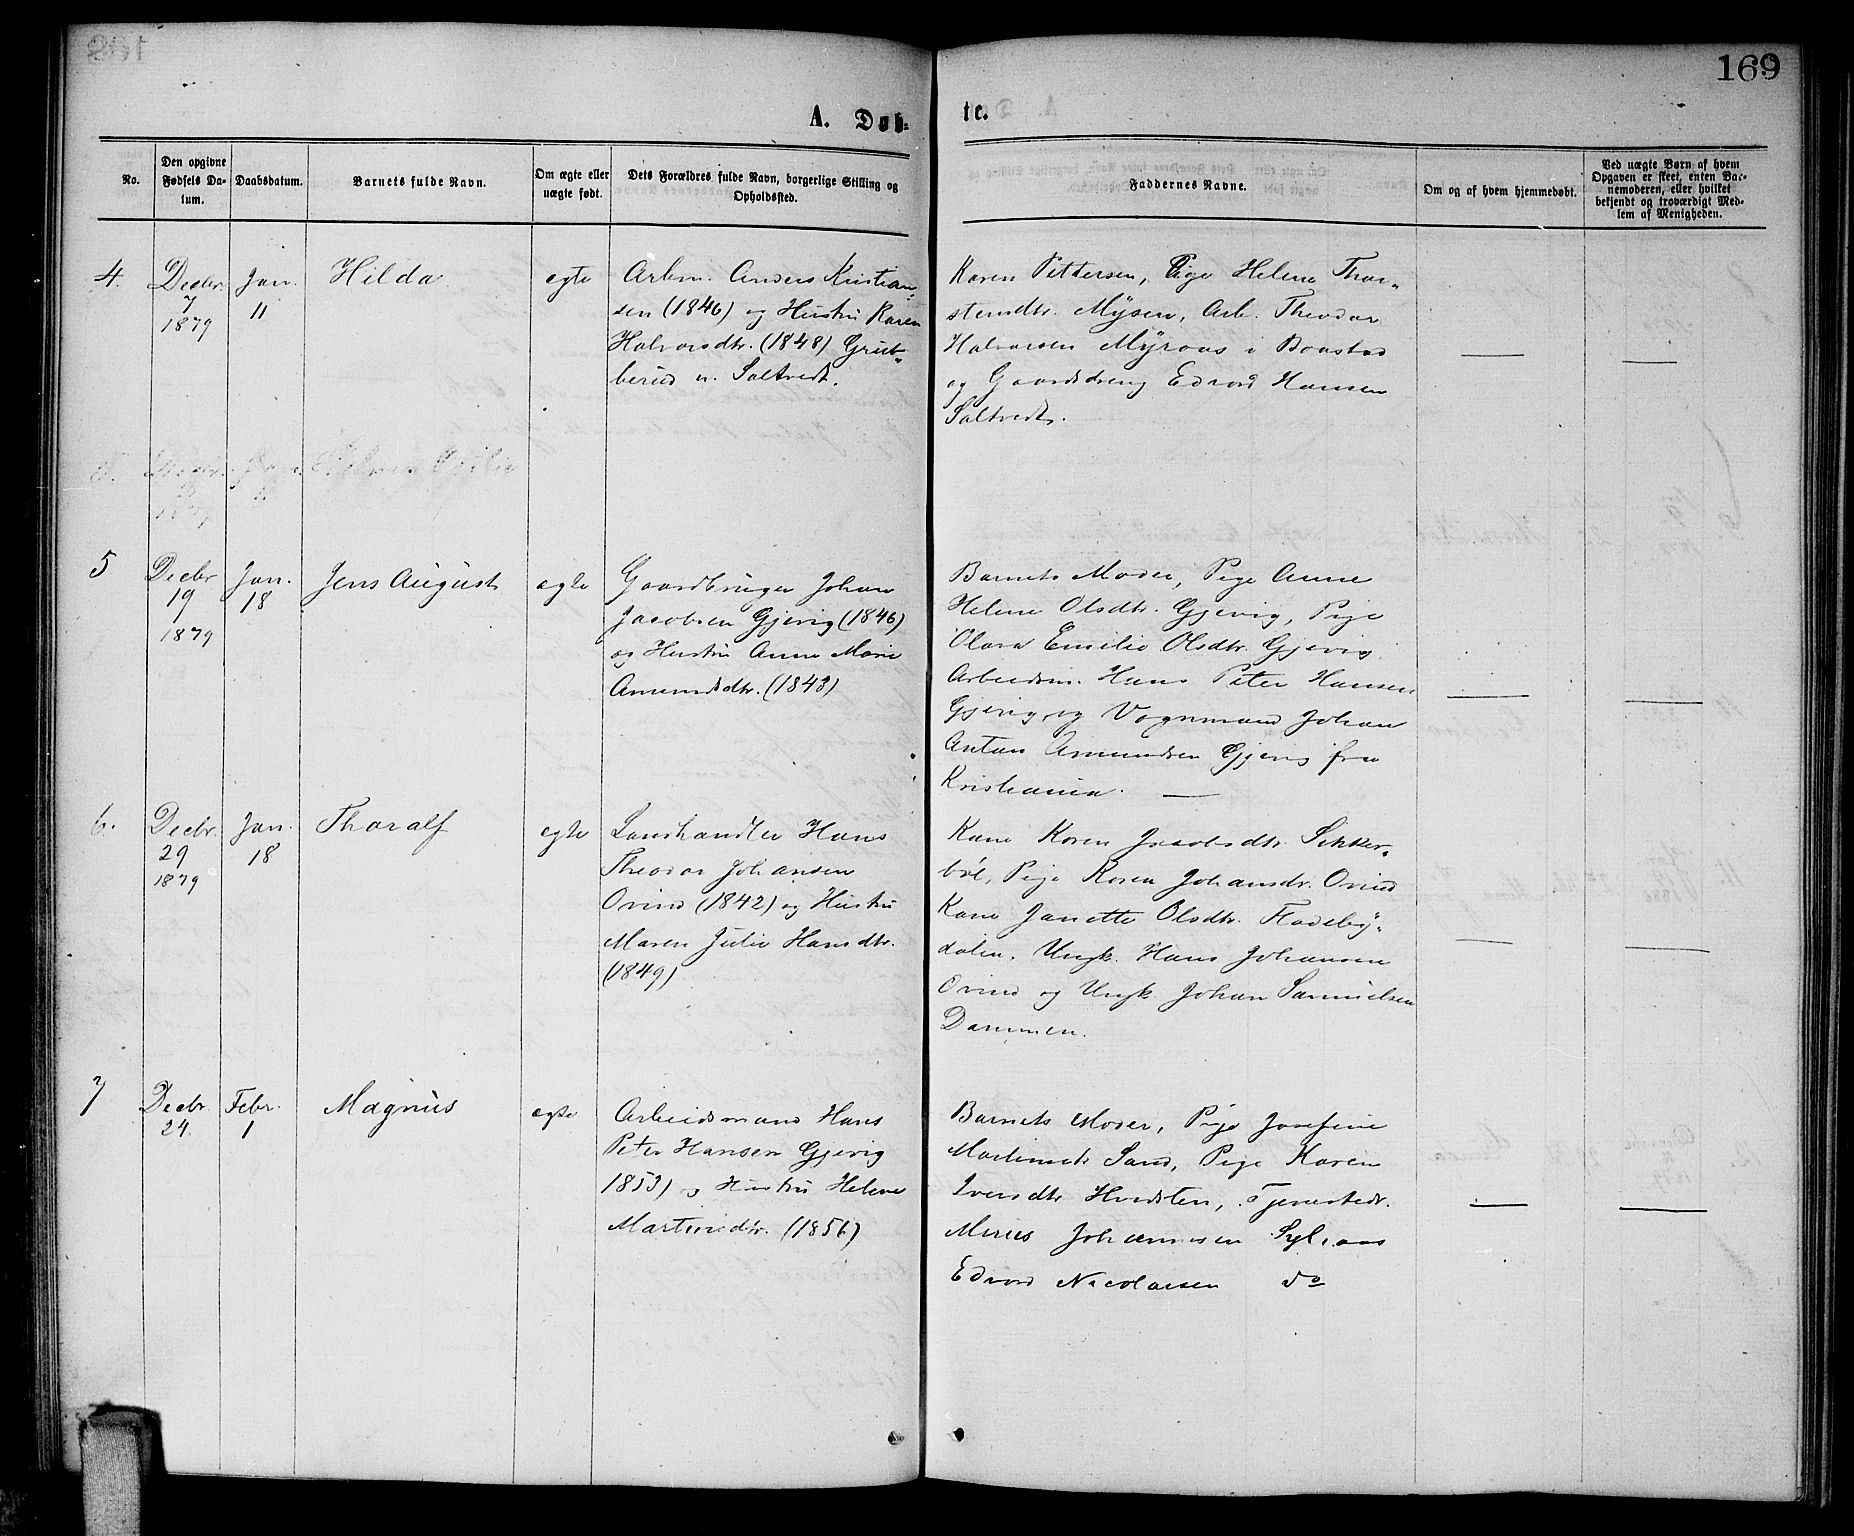 169
A. Døb-
te.
No.
Den opgivne Fødsels Da-tum.
Daabsdatum.
Barnets fulde Navn.
Om ægte eller uægte født.
Dets Forældres fulde Navn, borgerlige Stilling og Opholdssted.
Faddernes Navne.
Om og af hvem hjemmedøbt.
Ved uægte Børn af hvem Opgaven er skeet, enten Bar-nemoderen, eller hvilket bekjendt og troværdigt Med-lem af Menigheden.
4.
Decbr. 7 1879
Jan. 11
Hilda
egte
Arbm. Anders Kristian-
sen (1846) og Hustru Karen
Halvorsdtr. (1848) Grut-
berud u. Saltvedt.
Karen Pettersen, Pige Helene Thor-
stensdtr. Mysen, Arb. Theodor
Halvorsen Myraas i Baastad
og Gaardsdreng Edvard Hansen
Saltvedt.
5
Decbr 19 1879
Jan. 18
Jens August
egte
Gaardbruger Johan
Jacobsen Gjevig (1846)
og Hustru Anne Marie
Amundsdtr. (1843)
Barnets Moder, Pige Anne
Helene Olsdtr. Gjevig, Pige
Olava Emilie Olsdtr. Gjevig,
Arbeidsm. Hans Peter Hansen
Gjevig, og Vognmand Johan
Anton Amundsen Gjevig fra
Kristiania.
6.
Decbr. 29 1879
Jan. 18
Thoralf
egte
Landhandler Hans
Theodor Johansen
Ovind (1842) og Hustru
Maren Julie Hansdtr.
(1849)
Kone Karen Jacobsdtr. Sikker-
böl, Pige Karen Johansdr. Ovind
Kone Janette Olsdtr. Fladeby-
dalen, Ungk. Hans Johansen
Ovind og Ungk. Johan Samuelsen
Dammen.
7
Decbr 24.
Febr. 1
Magnus
egte
Arbeidsmand Hans
Peter Hansen Gjevig
1853) og Hustru Helene
Martinsdtr. (1856)
Barnets Moder, Pige Josefine
Martinsdtr Sand, Pige Karen
Iversdtr Hvidsten, Tjenestedr.
Johannesen
Edvard Nicolaisen do